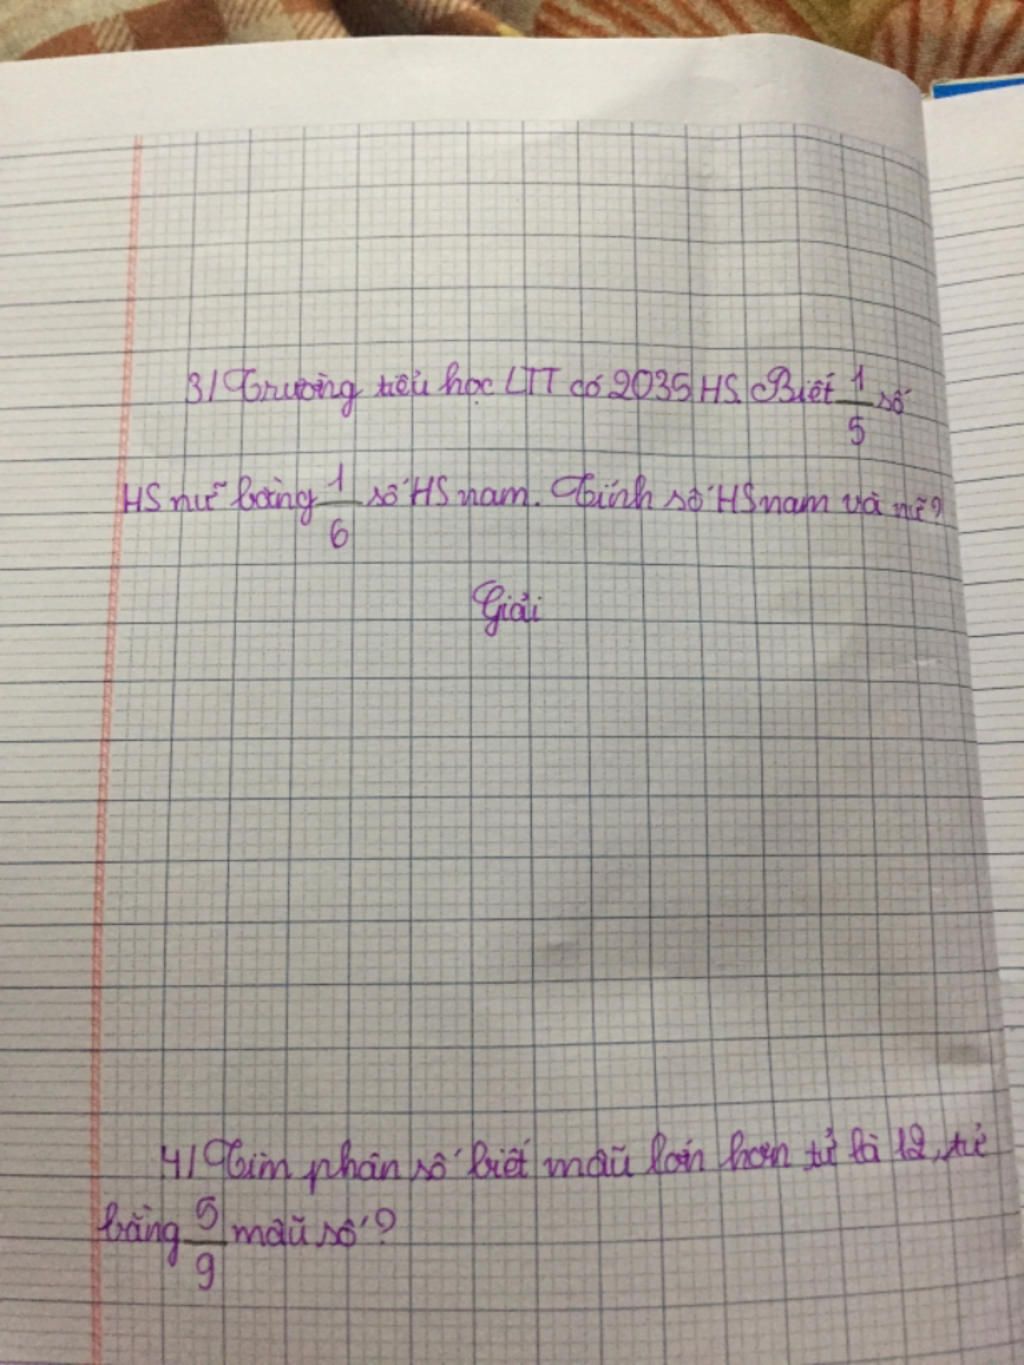 3/ Trường tiểu học LTT có 2035 HS. Biết 1/5 số
HS nữ bằng 1/6 số HS nam. Tính số HS nam và nữ?
Giải
4/ Tìm phân số biết mẫu lớn hơn tử là 12, tử
bằng 5/9 mẫu số?